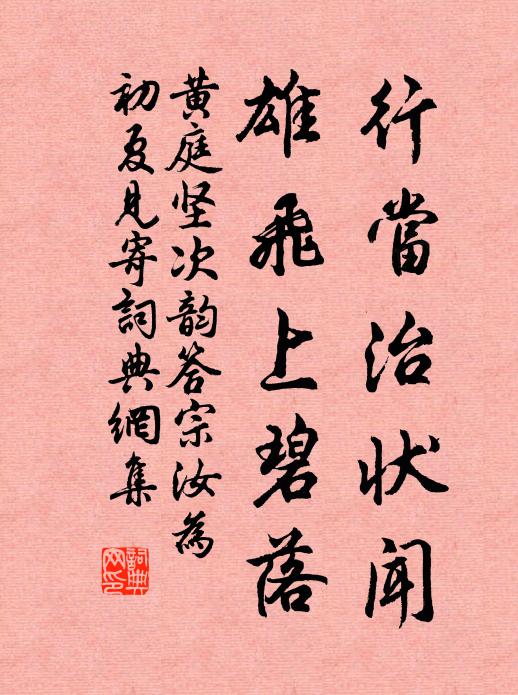 行當治状聞
雄飛上碧落
黄庭坚次韵答宗汝為
初夏見寄詞典網集
詞典
网印